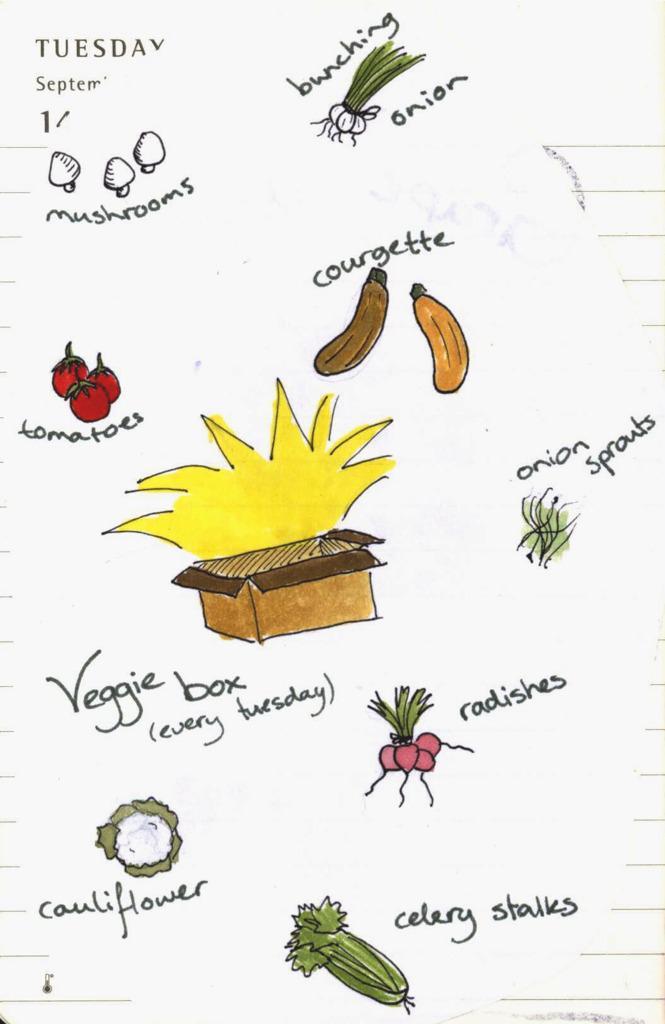 TUESDAY
Septem
bunching
onion
mushrooms
courgette
tomatoes
onion
sprouts
Veggie box
(every tuesday)
radishes
cauliflower
celery stalks